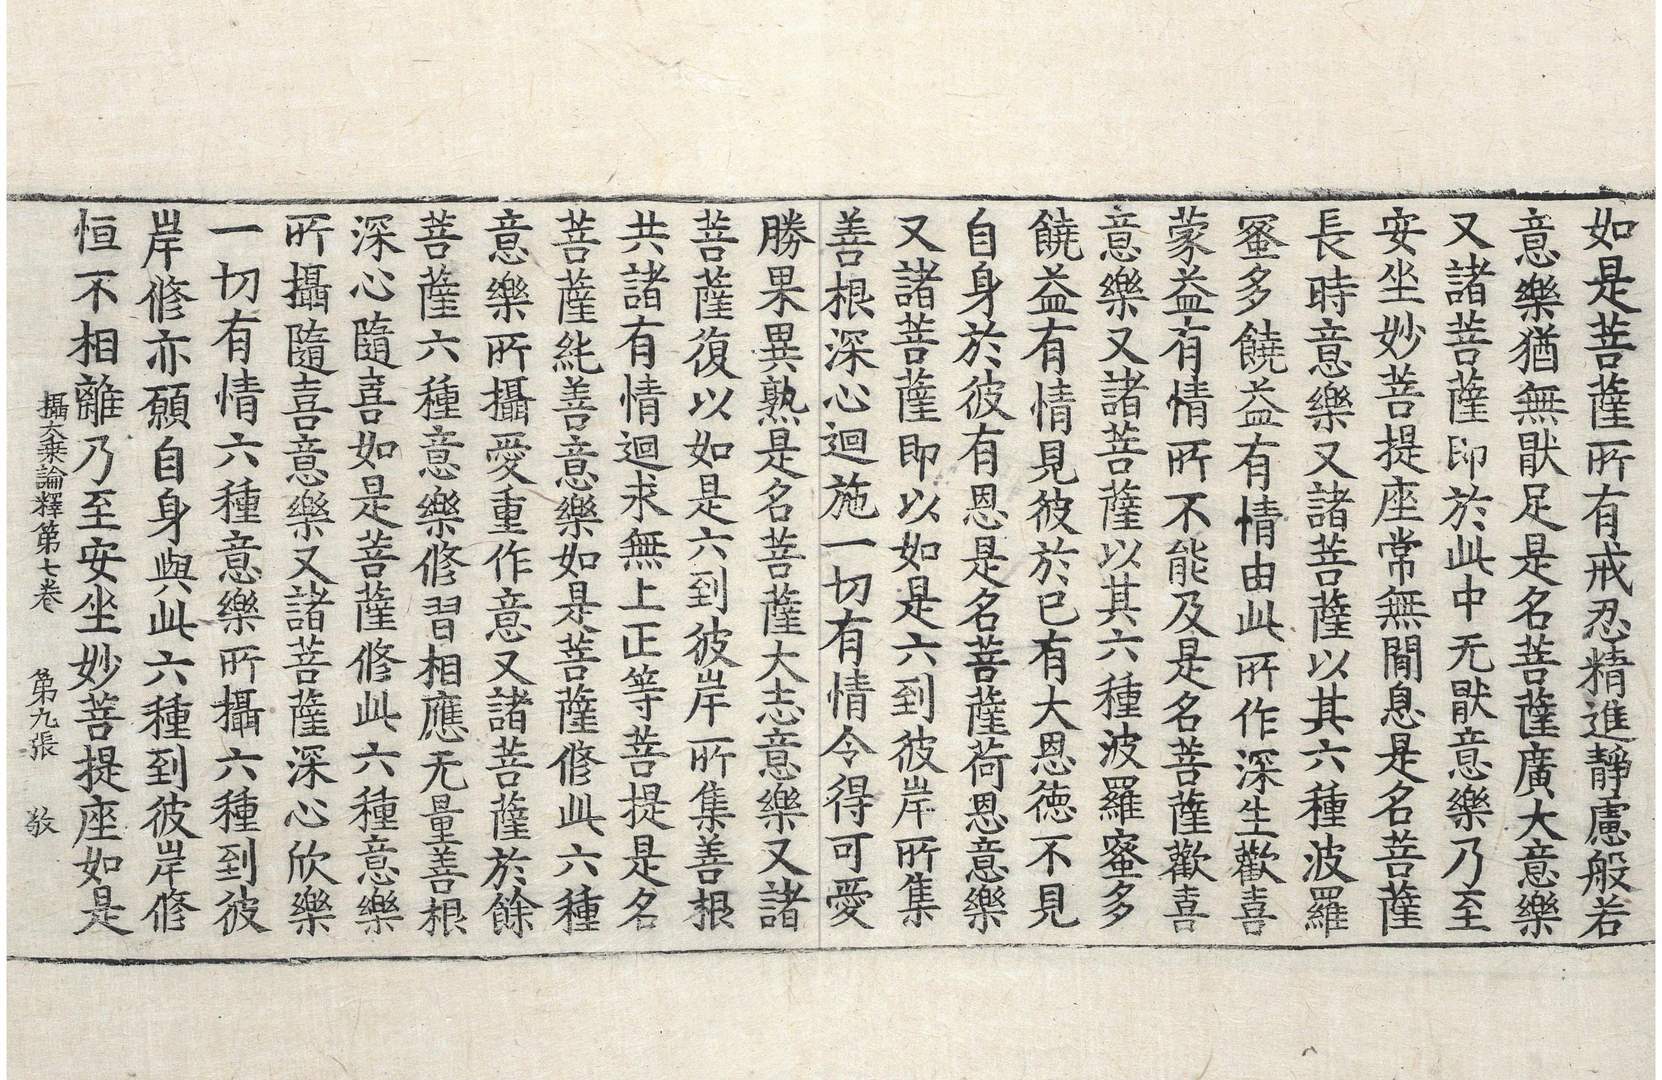 如是菩薩所有戒忍精進靜慮般若
意樂猶無猒足是名菩薩廣大意樂
又諸菩薩即於此中无猒意樂乃至
安坐妙菩提座常無閒息是名菩薩
長時意樂又諸菩薩以其六種波羅
蜜多饒益有情由此所作深生歡喜
蒙益有情所不能及是名菩薩歡喜
意樂又諸菩薩以其六種波羅蜜多
饒益有情見彼於已有大恩德不見
自身於彼有恩是名菩薩荷恩意樂
又諸菩薩即以如是六到彼岸所集
善根深心迴施一切有情令得可愛
勝果異熟是名菩薩大志意樂又諸
菩薩復以如是六到彼岸所集善根
共諸有情迴求無上正等菩提是名
菩薩純善意樂如是菩薩修此六種
意樂所攝愛重作意又諸菩薩於餘
菩薩六種意樂修習相應无量善根
深心隨喜如是菩薩修此六種意樂
所攝隨喜意樂又諸菩薩深心欣樂
一切有情六種意樂所攝六種到彼
岸修亦願自身與此六種到彼岸修
恒不相離乃至安坐妙菩提座如是
攝大乗論釋第七卷 第九張 敬